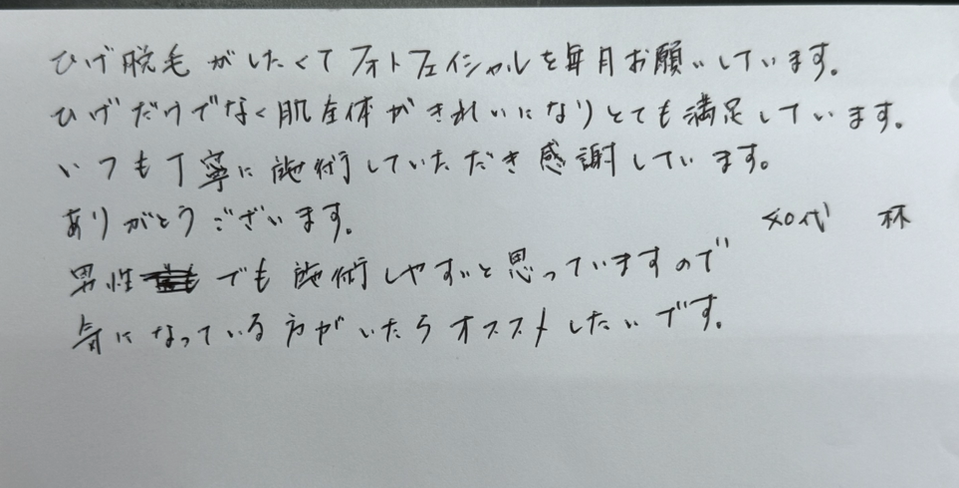 ひげ脱毛がしたくてフォトフェイシャルを毎月お願いしています。
ひげだけでなく肌全体がきれいになりとても満足しています。
いつも丁寧に施術していただき感謝しています。
ありがとうございます。
40代 林
男性でも施術しやすいと思っていますので
気になっている方がいたらオススメしたいです。